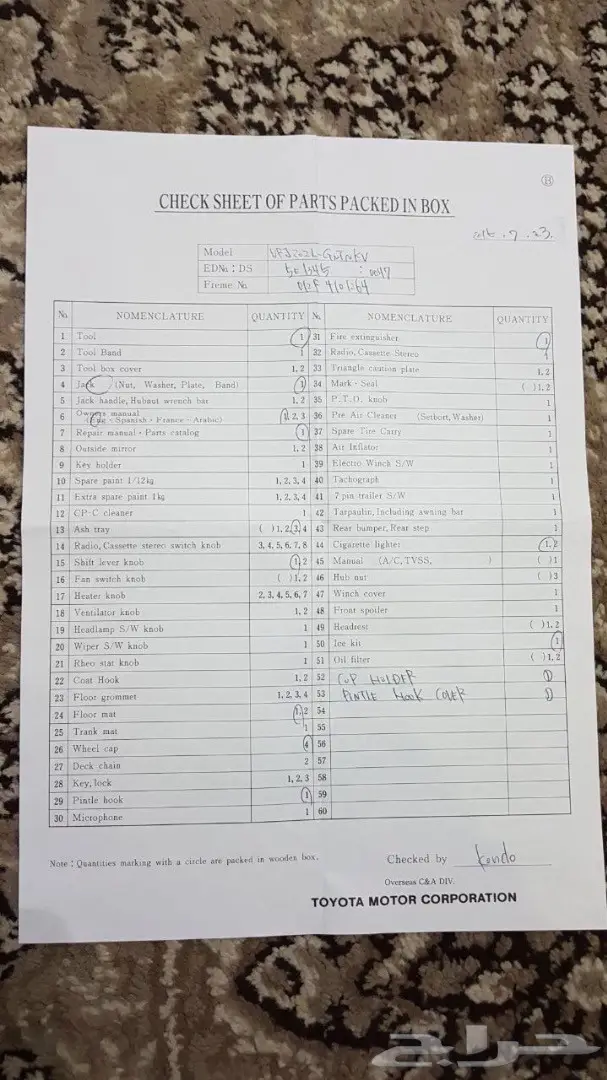 H
CHECK SHEET OF PARTS PACKED IN BOX
. 7 . 23.
Model
EDNo : DS : 0047
Freme No.
No. NOMENCLATURE QUANTITY No. NOMENCLATURE QUANTITY
1 Tool 1 31 Fire extinguisher 1
2 Tool Band 1 32 Radio, Cassette Stereo 1
3 Tool box cover 1, 2 33 Triangle caution plate 1, 2
4 Jack (Nut, Washer, Plate, Band) 1 34 Mark · Seal ( ) 1, 2
5 Jack handle, Hubnut wrench bar 1, 2 35 P.T.O. knob 1
6 Owners manual (Eng · Spanish · France · Arabic) 1, 2, 3 36 Pre Air Cleaner (Setbort, Washer) 1
7 Repair manual · Parts catalog 1 37 Spare Tire Carry 1
8 Outside mirror 1, 2 38 Air Inflator 1
9 Key holder 1 39 Electro Winch S/W 1
10 Spare paint 1/12kg 1, 2, 3, 4 40 Tachograph 1
11 Extra spare paint 1kg 1, 2, 3, 4 41 7 pin trailer S/W 1
12 CP·C cleaner 1 42 Tarpaulin, Including awning bar 1
13 Ash tray ( ) 1, 2, 3, 4 43 Rear bumper, Rear step 1
14 Radio, Cassette stereo switch knob 3, 4, 5, 6, 7, 8 44 Cigarette lighter 1, 2
15 Shift lever knob 1, 2 45 Manual (A/C, TVSS, ) ( ) 1
16 Fan switch knob ( ) 1, 2 46 Hub nut ( ) 3
17 Heater knob 2, 3, 4, 5, 6, 7 47 Winch cover 1
18 Ventilator knob 1, 2 48 Front spoiler 1
19 Headlamp S/W knob 1 49 Headrest ( ) 1, 2
20 Wiper S/W knob 1 50 Ice kit 1
21 Rheo stat knob 1 51 Oil filter ( ) 1, 2
22 Coat Hook 1, 2 52 CUP HOLDER 1
23 Floor grommet 1, 2, 3, 4 53 PINTLE HOOK COVER 1
24 Floor mat 1, 2 54
25 Trank mat 1 55
26 Wheel cap 4 56
27 Deck chain 2 57
28 Key, lock 1, 2, 3 58
29 Pintle hook 1 59
30 Microphone 1 60
Note : Quantities marking with a circle are packed in wooden box.
Checked by Kondo
Overseas C&A DIV.
TOYOTA MOTOR CORPORATION
حراج